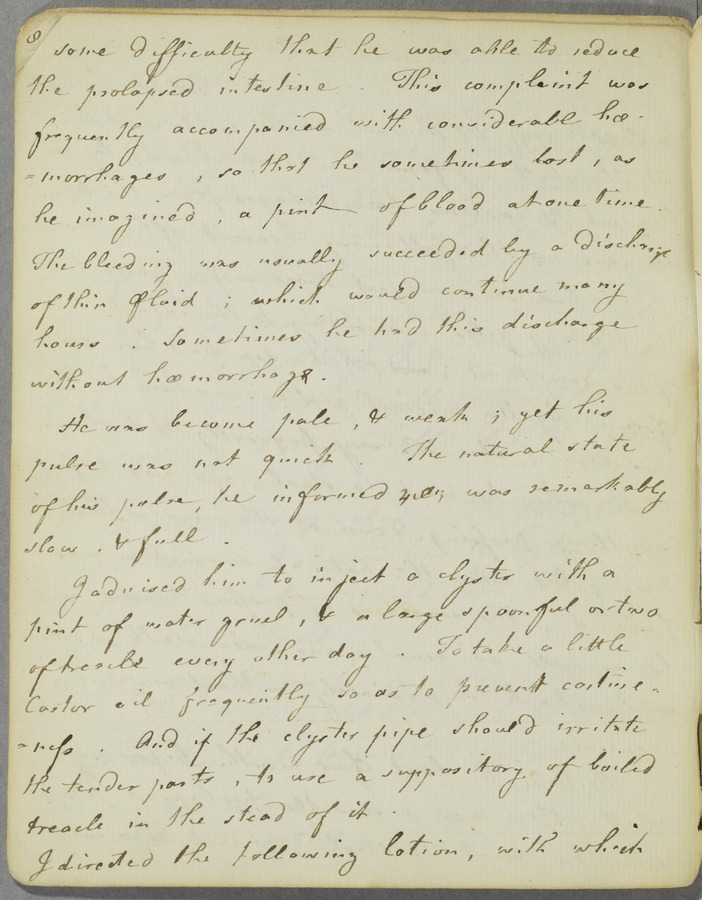 8
some difficulty that he was able to reduce
the prolapsed intestine . This complaint was
frequently accompanied with considerable hœ-
=morrhages , so that he sometimes lost , as
he imagined , a pint of blood at one time .
The bleeding was usually succeeded by a discharge
of thin fluid ; which would continue many
hours . Sometimes he had this discharge
without hœmorrhage .
He was become pale , & weak ; yet his
pulse was not quick . The natural state
of his pulse , he informed me, was remarkably
slow , & full .
I advised him to inject a clyster with a
pint of water gruel , & a large spoonful or two
of treacle every other day . To take a little
Castor oil frequently so as to prevent costive=
=ness . And if the clyster pipe should irritate
the tender parts , to use a suppository of boiled
treacle in the stead of it .
I directed the following lotion , with which